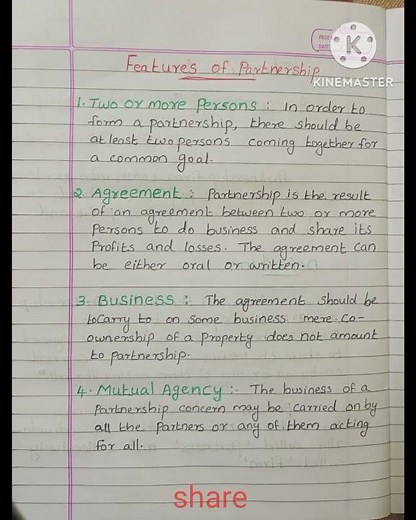 KINEMASTER
Features of Partnership
1. Two or more Persons : In order to
form a partnership, there should be
at least two persons coming together for
a common goal.
2. Agreement : Partnership is the result
of an agreement between two or more
Persons to do business and share its
Profits and losses. The agreement can
be either oral or written.
3. Business : The agreement should be
to carry to on some business mere co-
ownership of a property does not amount
to partnership.
4. Mutual Agency :- The business of a
Partnership concern may be carried on by
all the Partners or any of them acting
for all.
share